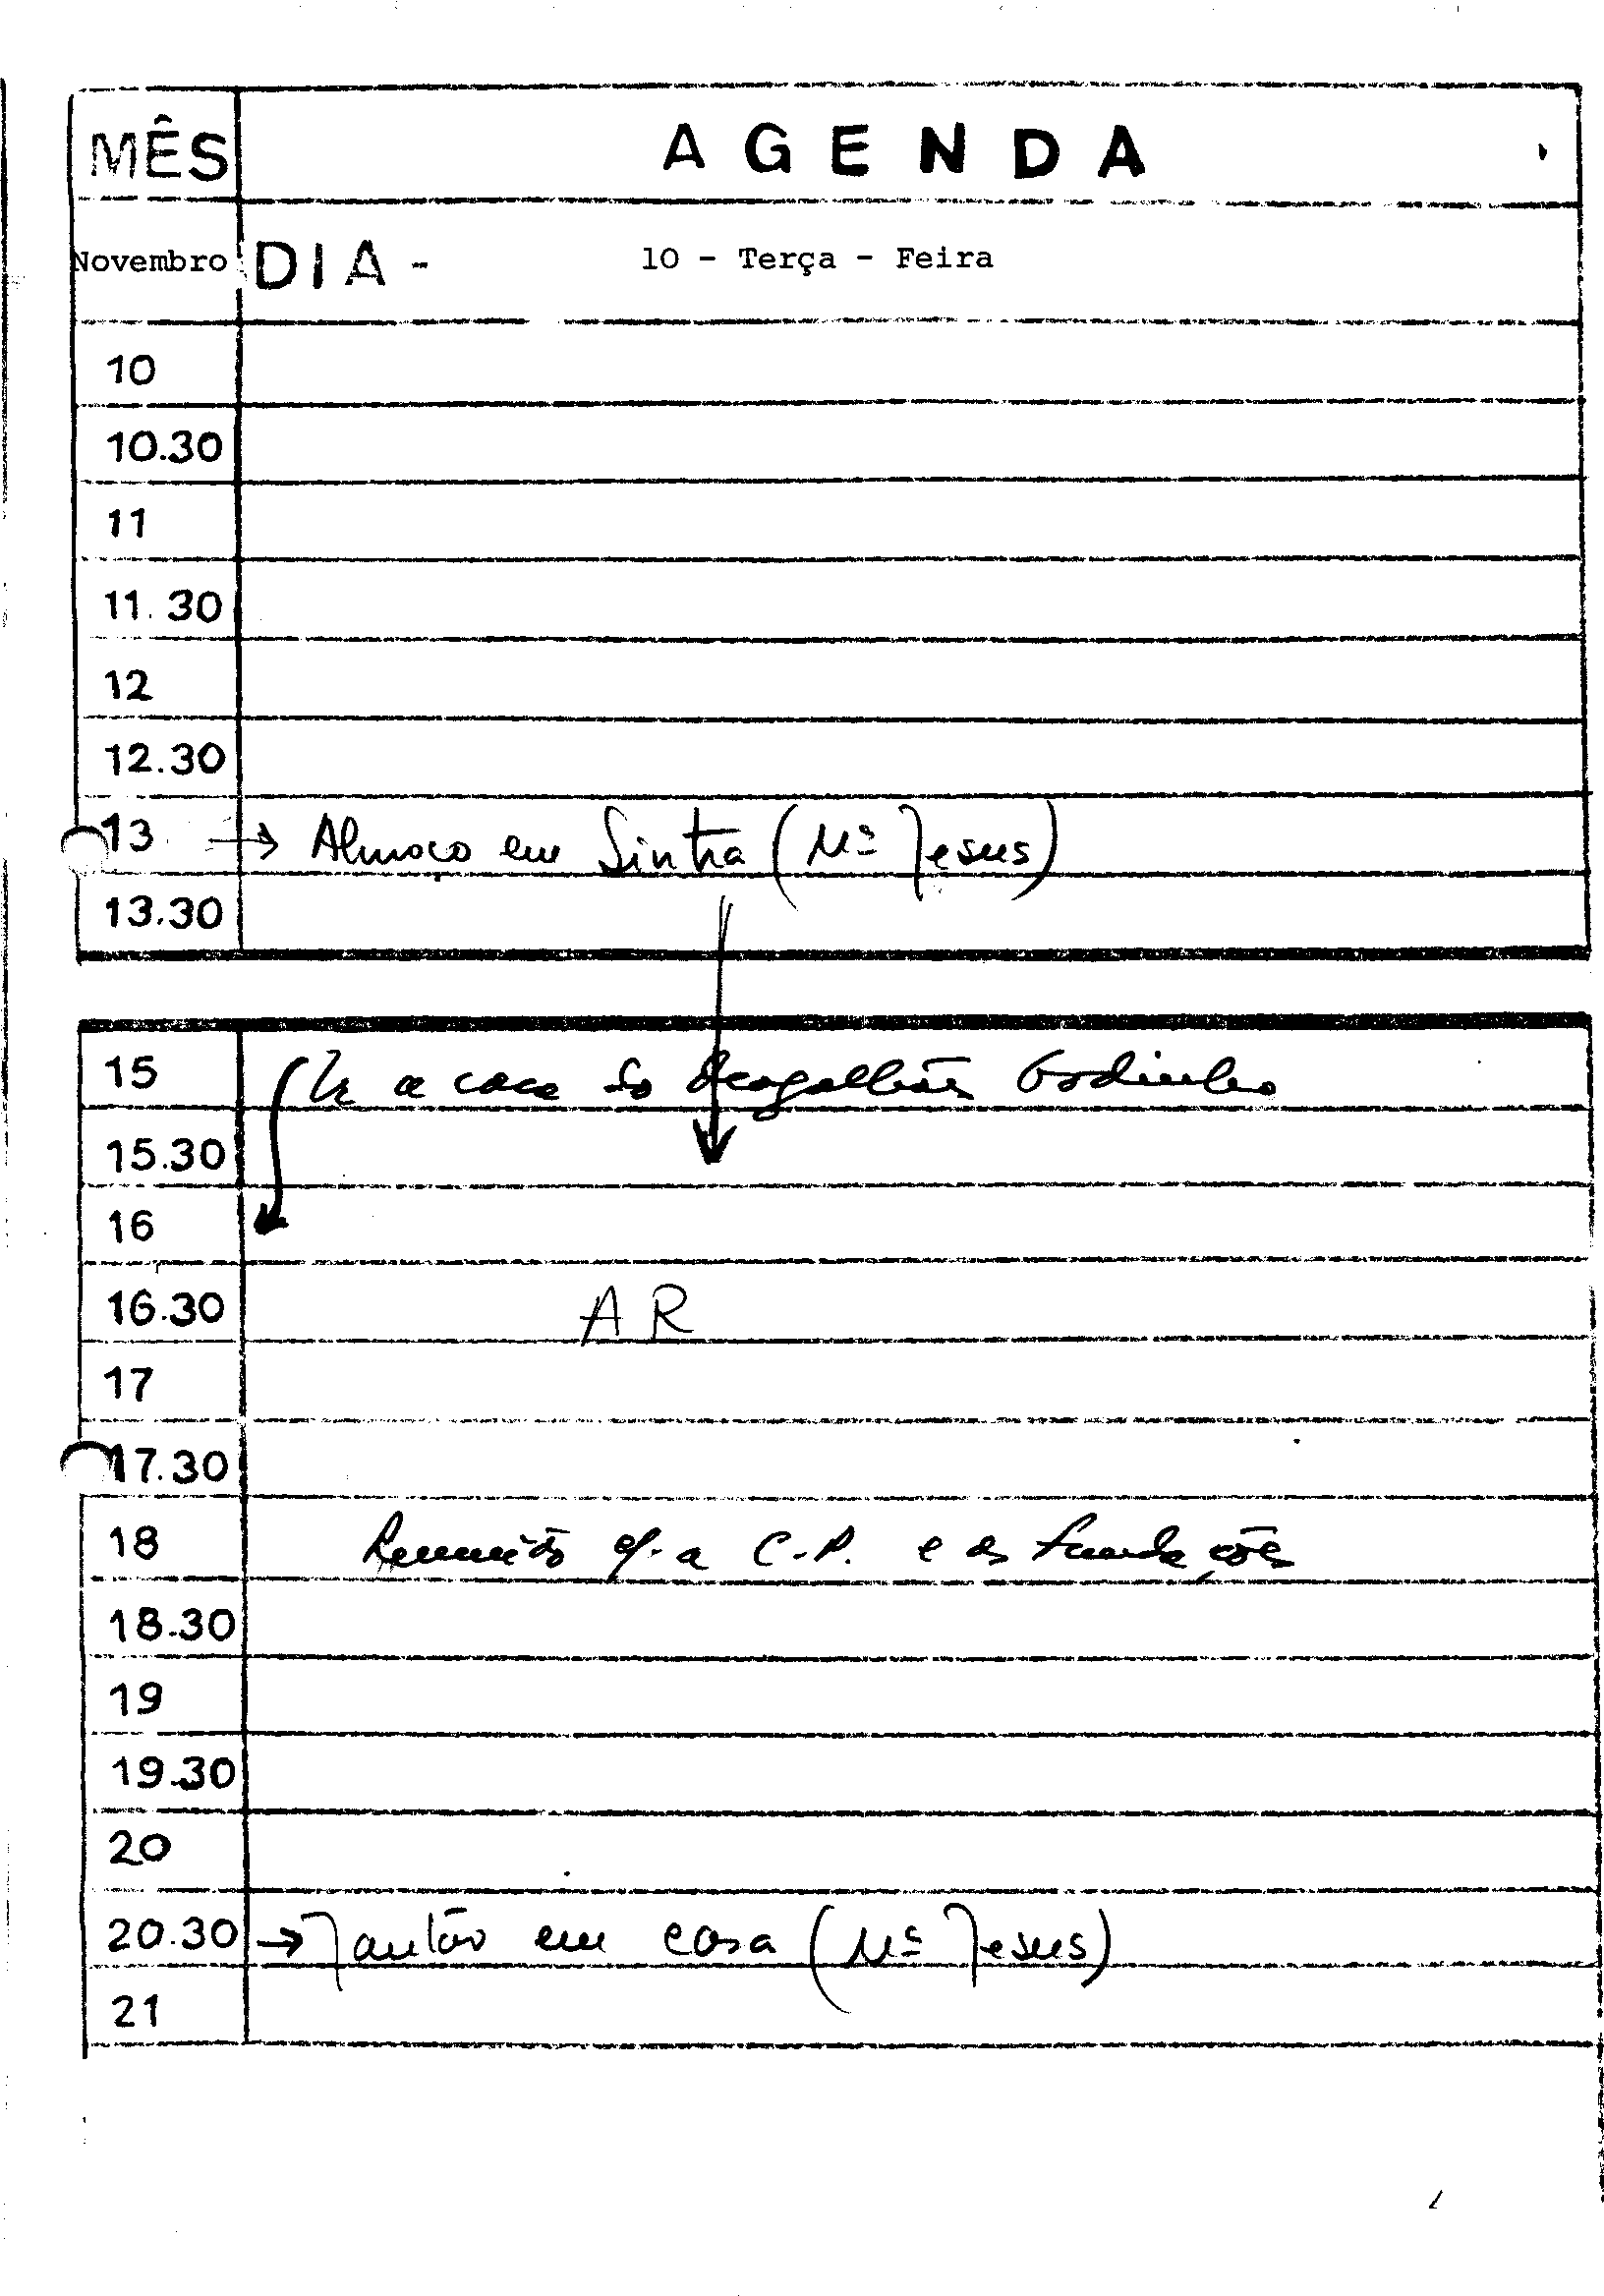 MÊS AGENDA
Novembro DIA - 10 - Terça - Feira
10
10.30
11
11.30
12
12.30
13 → Almoço em Sintra (Mª Jesus)
13.30
15 Ir a casa do Magalhães Godinho
15.30
16
16.30 AR
17
17.30
18 Reunião c/. a C.P. e as Fundações
18.30
19
19.30
20
20.30 → Jantar em casa (Mª Jesus)
21